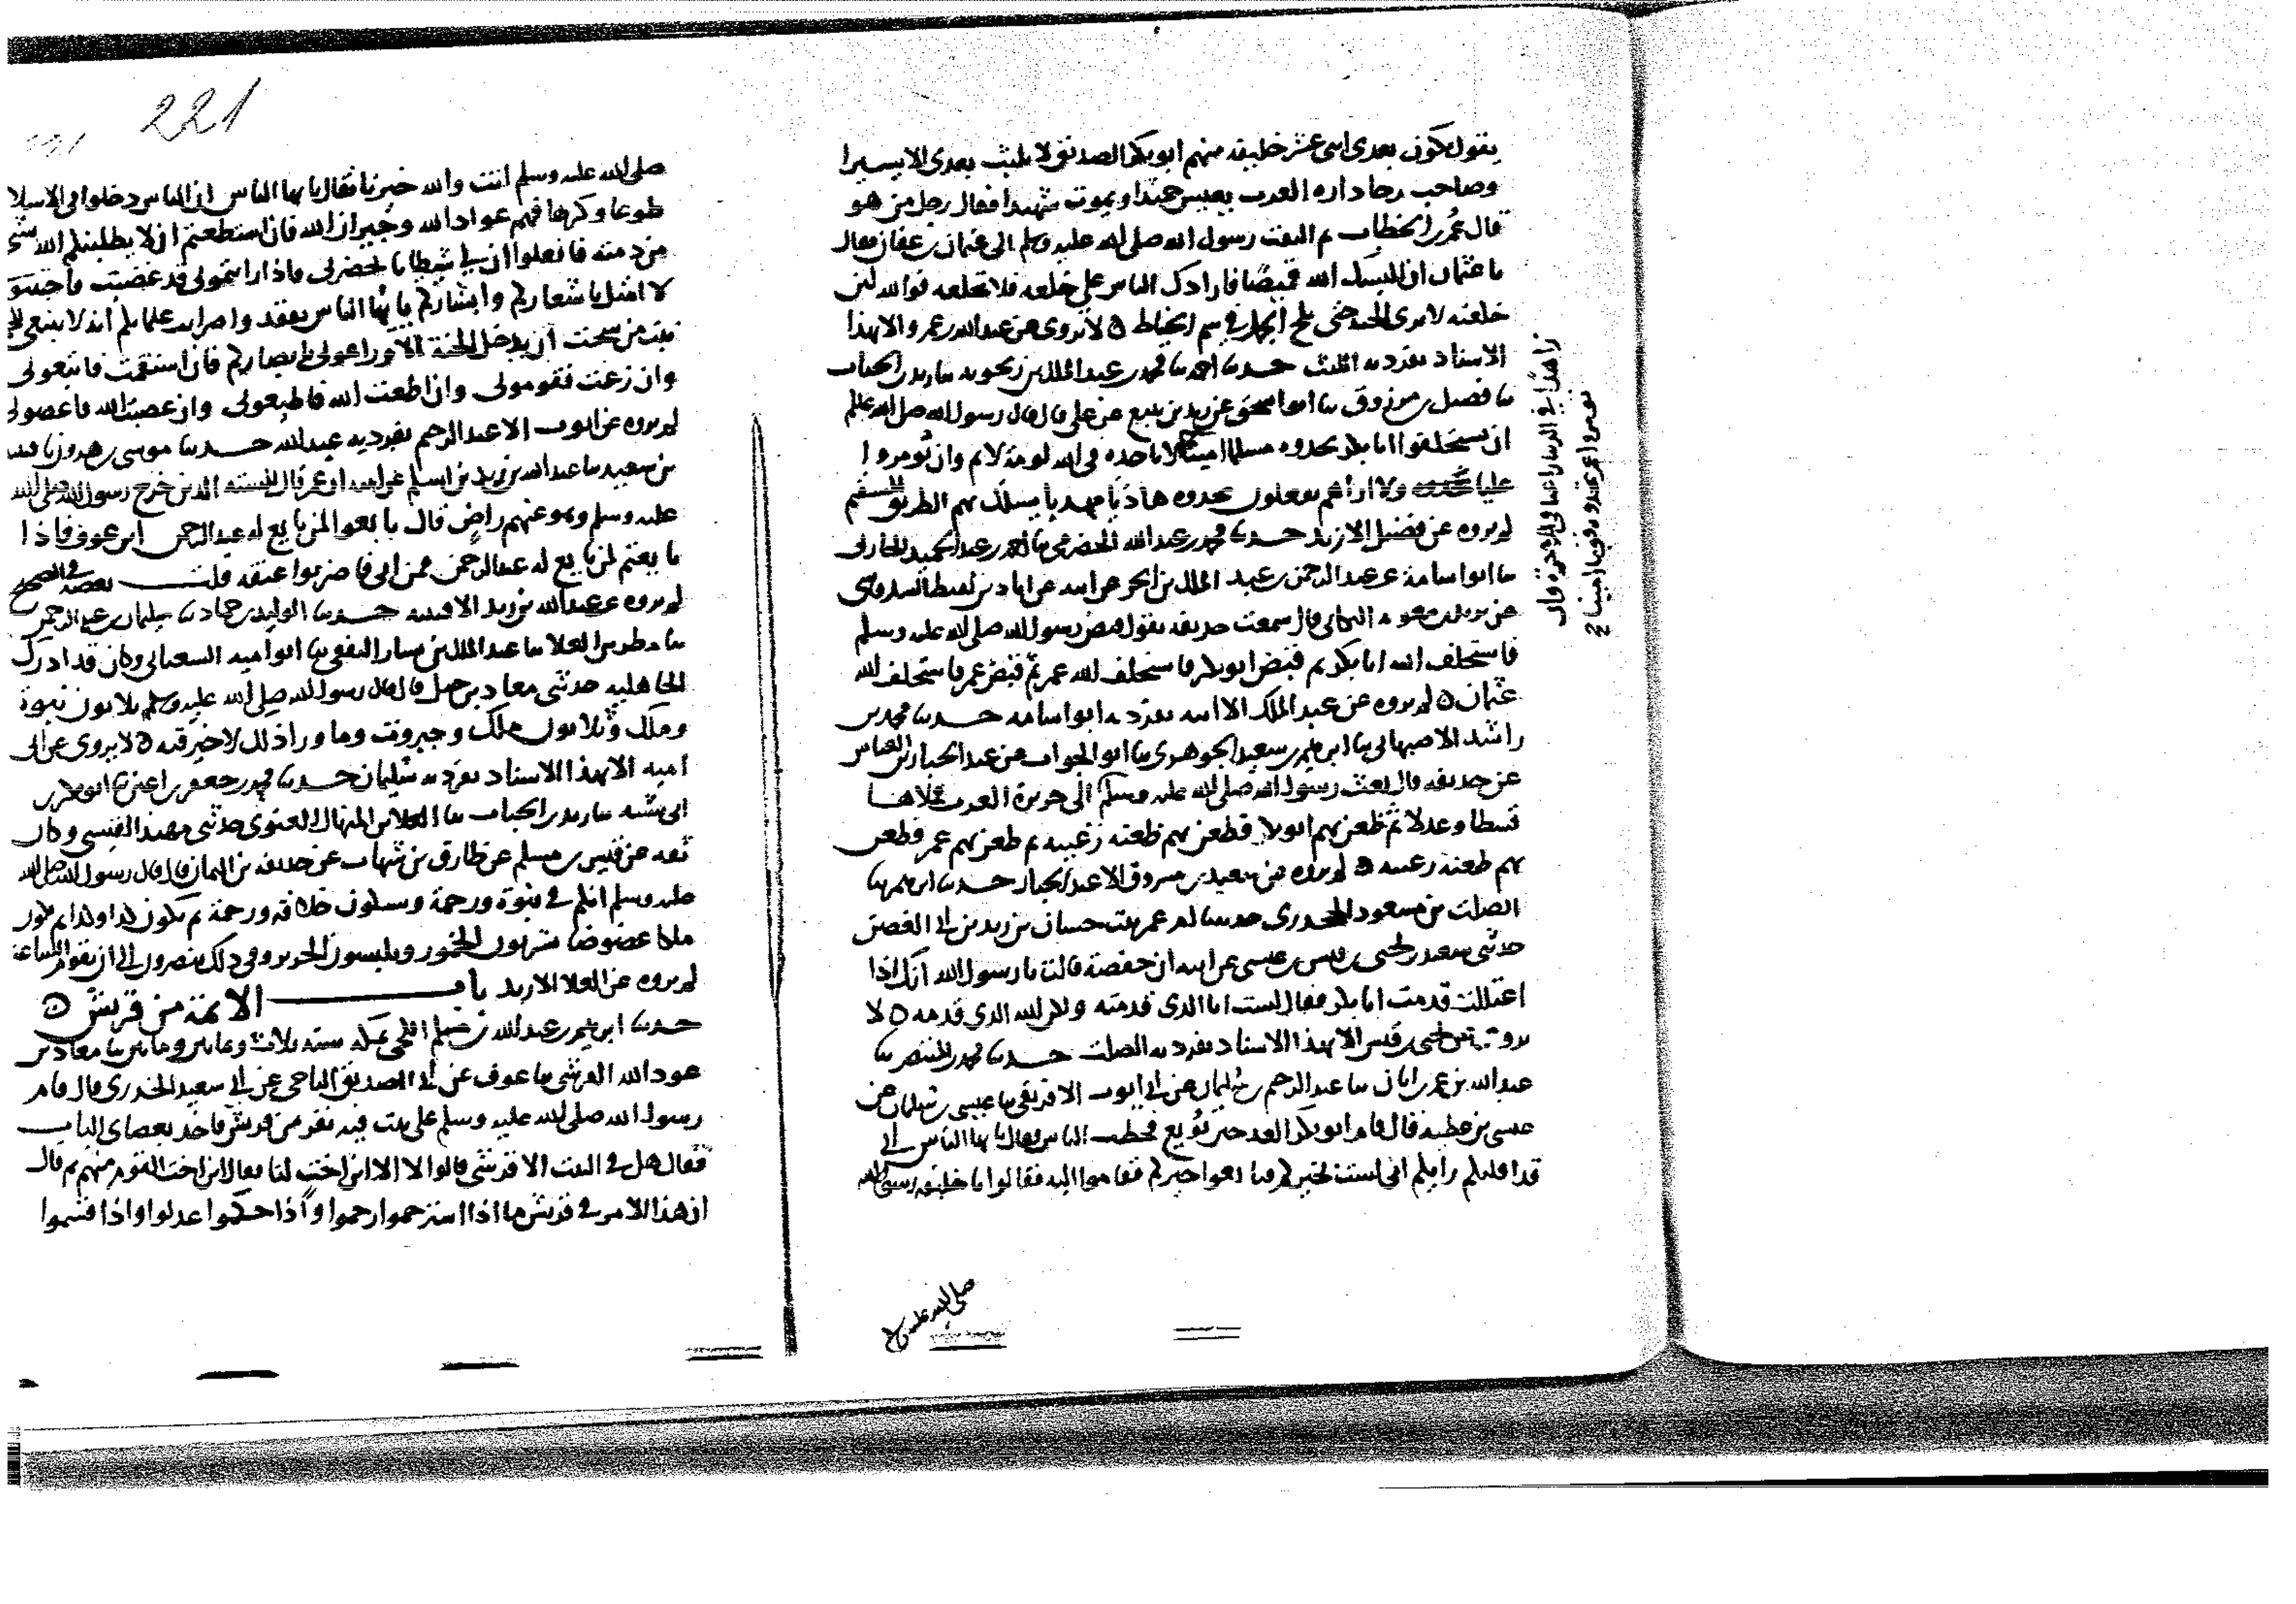 يقول يكون بعدي اثنى عشر خليفة منهم ابو بكر الصديق لا يلبث بعدي الا يسيرا
وصاحب رحا داره العرب يعيش حميدا ويموت شهيدا فقال رجل من هو
قال عمر بن الخطاب ثم التفت رسول الله صلى الله عليه وسلم الى عثمان بن عفان فقال
يا عثمان ان البسك الله قميصا فارادك الناس على خلعه فلا تخلعه فوالله لئن
خلعته لا ترى الجنة حتى يلج الجمل في سم الخياط ٥ لا يروى عن عبد الله بن عمرو الا بهذا
الاسناد تفرد به الليث حدثنا احمد نا محمد بن عبد الملك بن زنجويه نا زيد بن الحباب
نا فضيل بن مرزوق نا ابو اسحق عن زيد بن يثيع عن علي قال قال رسول الله صلى الله عليه وسلم
ان تستخلفوا ابا بكر تجدوه مسلما امينا لا تاخذه في الله لومة لائم وان تومروا
عليا ولا اراكم تفعلون تجدوه هاديا مهديا يسلك بهم الطريق المستقيم
لم يروه عن فضيل الا زيد حدثنا محمد بن عبد الله الحضرمي نا احمد بن عبد الحميد الحارثي
نا ابو اسامة عن عبد الرحمن بن عبد الملك بن ابجر عن ابيه عن اياد بن لقيط السدوسي
عن سمعت حذيفة يقول قبض رسول الله صلى الله عليه وسلم
فاستخلف الله ابا بكر ثم قبض ابو بكر فاستخلف الله عمر ثم قبض عمر فاستخلف الله
عثمان ٥ لم يروه عن عبد الملك الا ابنه تفرد به ابو اسامة حدثنا محمد بن
راشد الاصبهاني نا ابراهيم بن سعيد الجوهري نا ابو الجواب عن عبد الجبار بن العباس
عن حذيفة قال بعث رسول الله صلى الله عليه وسلم الى جزيرة العرب فملاها
قسطا وعدلا ثم ظعن بهم ابو بكر فظعن بهم ظعنة رغيبة ثم ظعن بهم عمر فظعن
بهم ظعنة رغيبة ٥ لم يروه عن سعيد بن مسروق الا عبد الجبار حدثنا ابراهيم نا
الصلت بن مسعود الجحدري حدثتنا ام عمر بنت حسان بن زيد بن ابي الغصن
حدثني سعيد بن يحيى بن قيس بن عيسى عن ابيه ان حفصة قالت يا رسول الله انك اذا
اعتللت قدمت ابا بكر فقال لست انا الذي قدمته ولكن الله الذي قدمه ٥ لا
يروى عن يحيى بن قيس الا بهذا الاسناد تفرد به الصلت حدثنا محمد بن المنتصر نا
عبد الله بن عمر بن ابان نا عبد الرحيم بن سليمان عن ابي ايوب الافريقي نا عيسى بن سليمان عن
عيسى بن عطية قال قام ابو بكر الغد حين بويع فخطب الناس فقال يا ايها الناس اني
قد اقلتكم رايكم اني لست بخيركم فبايعوا خيركم فقاموا اليه فقالوا يا خليفة رسول الله
زاهدا في الدنيا راغبا في الاخرة وان
صلى الله عليه وسلم
221
صلى الله عليه وسلم انت والله خيرنا فقال يا ايها الناس ان الناس دخلوا في الاسلا
طوعا وكرها فهم عواد الله وجيران الله فان استطعتم ان لا يطلبنكم الله بشي
من ذمته فافعلوا ان لي شيطانا يحضرني فاذا رايتموني قد غضبت فاجتنبو
لا امثل باشعاركم وابشاركم يا ايها الناس تفقدوا ضرايب غلمانكم انه لا ينبغي للحم
نبت من سحت ان يدخل الجنة الا وراعوني بابصاركم فان استقمت فاتبعوني
وان زغت فقوموني وان اطعت الله فاطيعوني وان عصيت الله فاعصوني
لم يروه عن ايوب الا عبد الرحيم تفرد به عبد الله حدثنا موسى بن هرون نا قتيبة
بن سعيد نا عبد الله بن زيد بن اسلم عن ابيه ان عمر قال للستة الذين خرج رسول الله صلى الله
عليه وسلم وهو عنهم راض قال بايعوا لمن بايع له عبد الرحمن ابن عوف فاذا
بايعتم لمن بايع له عبد الرحمن فمن ابى فاضربوا عنقه قلت بعضه في الصحيح
لم يروه عن عبد الله بن زيد الا قتيبة حدثنا الوليد بن حماد نا سليمان بن عبد الرحمن
نا مطر بن العلا نا عبد الملك بن يسار الثقفي نا ابو امية الشعباني وكان قد ادرك
الجاهلية حدثني معاذ بن جبل قال قال رسول الله صلى الله عليه وسلم ثلاثون نبوة
وملك وثلاثون ملك وجبروت وما ورا ذلك لا خير فيه ٥ لا يروى عن ابي
امية الا بهذا الاسناد تفرد به سليمان حدثنا محمد بن جعفر بن اعين نا ابو بكر بن
ابي شيبة نا زيد بن الحباب نا العلا بن المنهال الغنوي حدثني مهند القيسي وكان
ثقة عن قيس بن مسلم عن طارق بن شهاب عن حذيفة بن اليمان قال قال رسول الله صلى الله
عليه وسلم انكم في نبوة ورحمة وستكون خلافة ورحمة ثم يكون كذا وكذا ثم يكون
ملكا عضوضا يشربون الخمور ويلبسون الحرير وفي ذلك ينصرون الى ان تقوم الساعة
لم يروه عن العلا الا زيد باب الائمة من قريش ٥
حدثنا ابراهيم بن عبد الله بن مسلم الكجي بمكة سنة ثلاث وثمانين ومائتين نا معاذ بن
عوذ الله القرشي نا عوف عن ابي الصديق الناجي عن ابي سعيد الخدري قال قام
رسول الله صلى الله عليه وسلم على بيت فيه نفر من قريش فاخذ بعضادتي الباب
فقال هل في البيت الا قرشي قالوا لا الا ابن اخت لنا فقال ابن اخت القوم منهم ثم قال
ان هذا الامر في قريش ما اذا استرحموا رحموا واذا حكموا عدلوا واذا قسموا